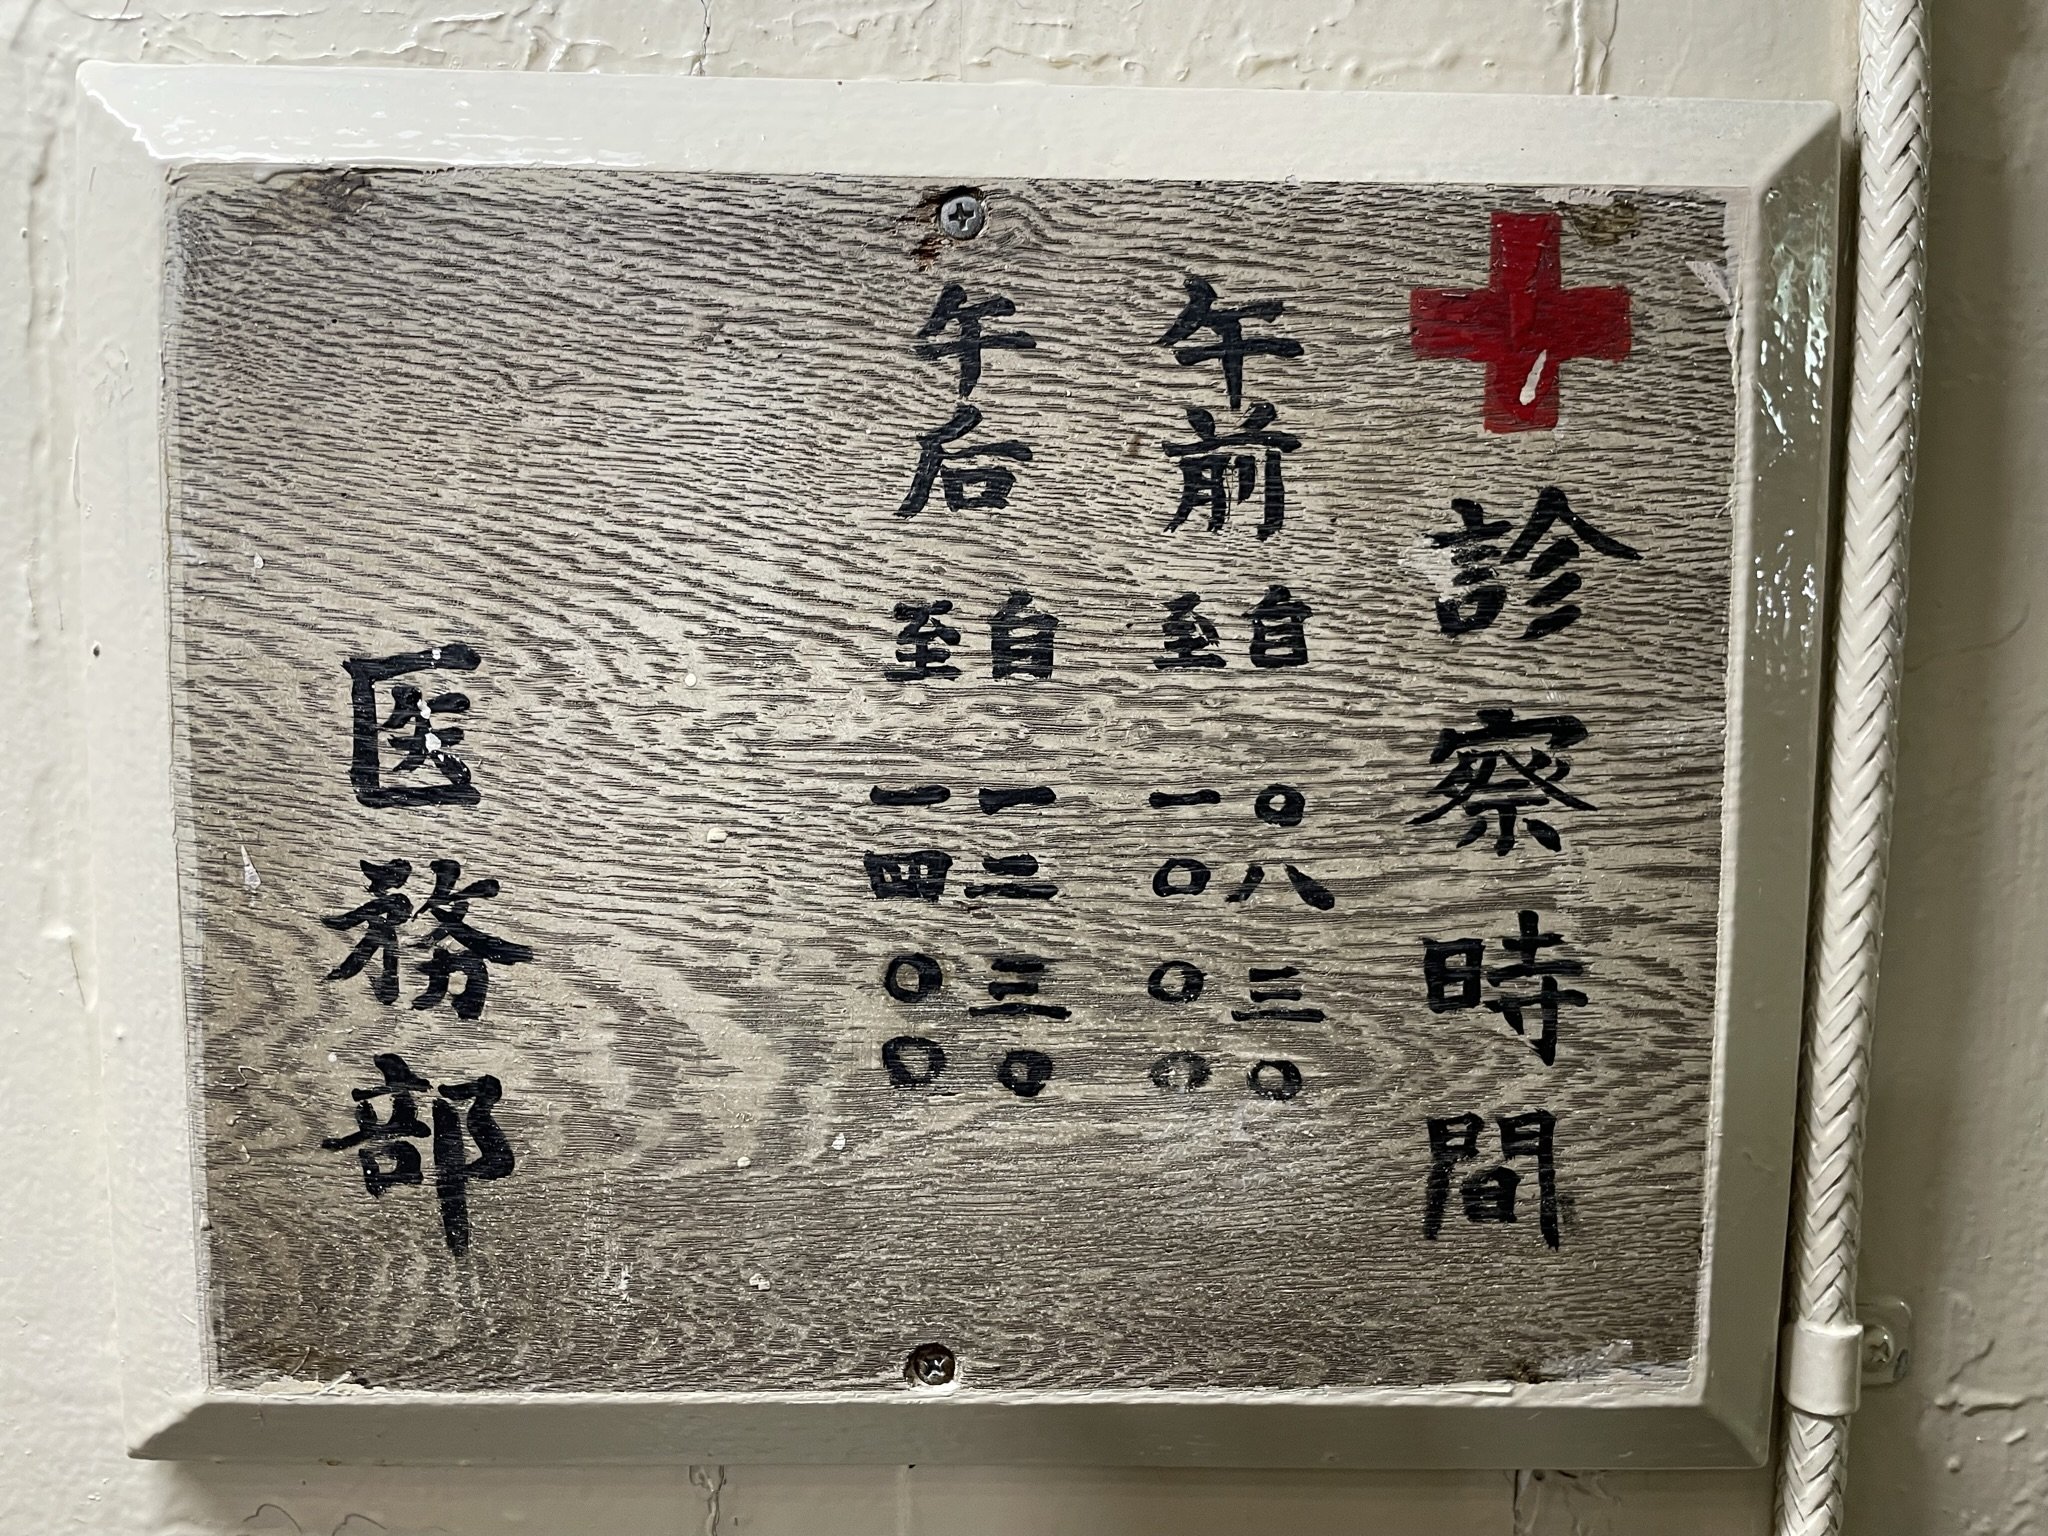 診察時間
午前 自 〇八三〇
至 一〇〇〇
午后 自 一二三〇
至 一四〇〇
医務部